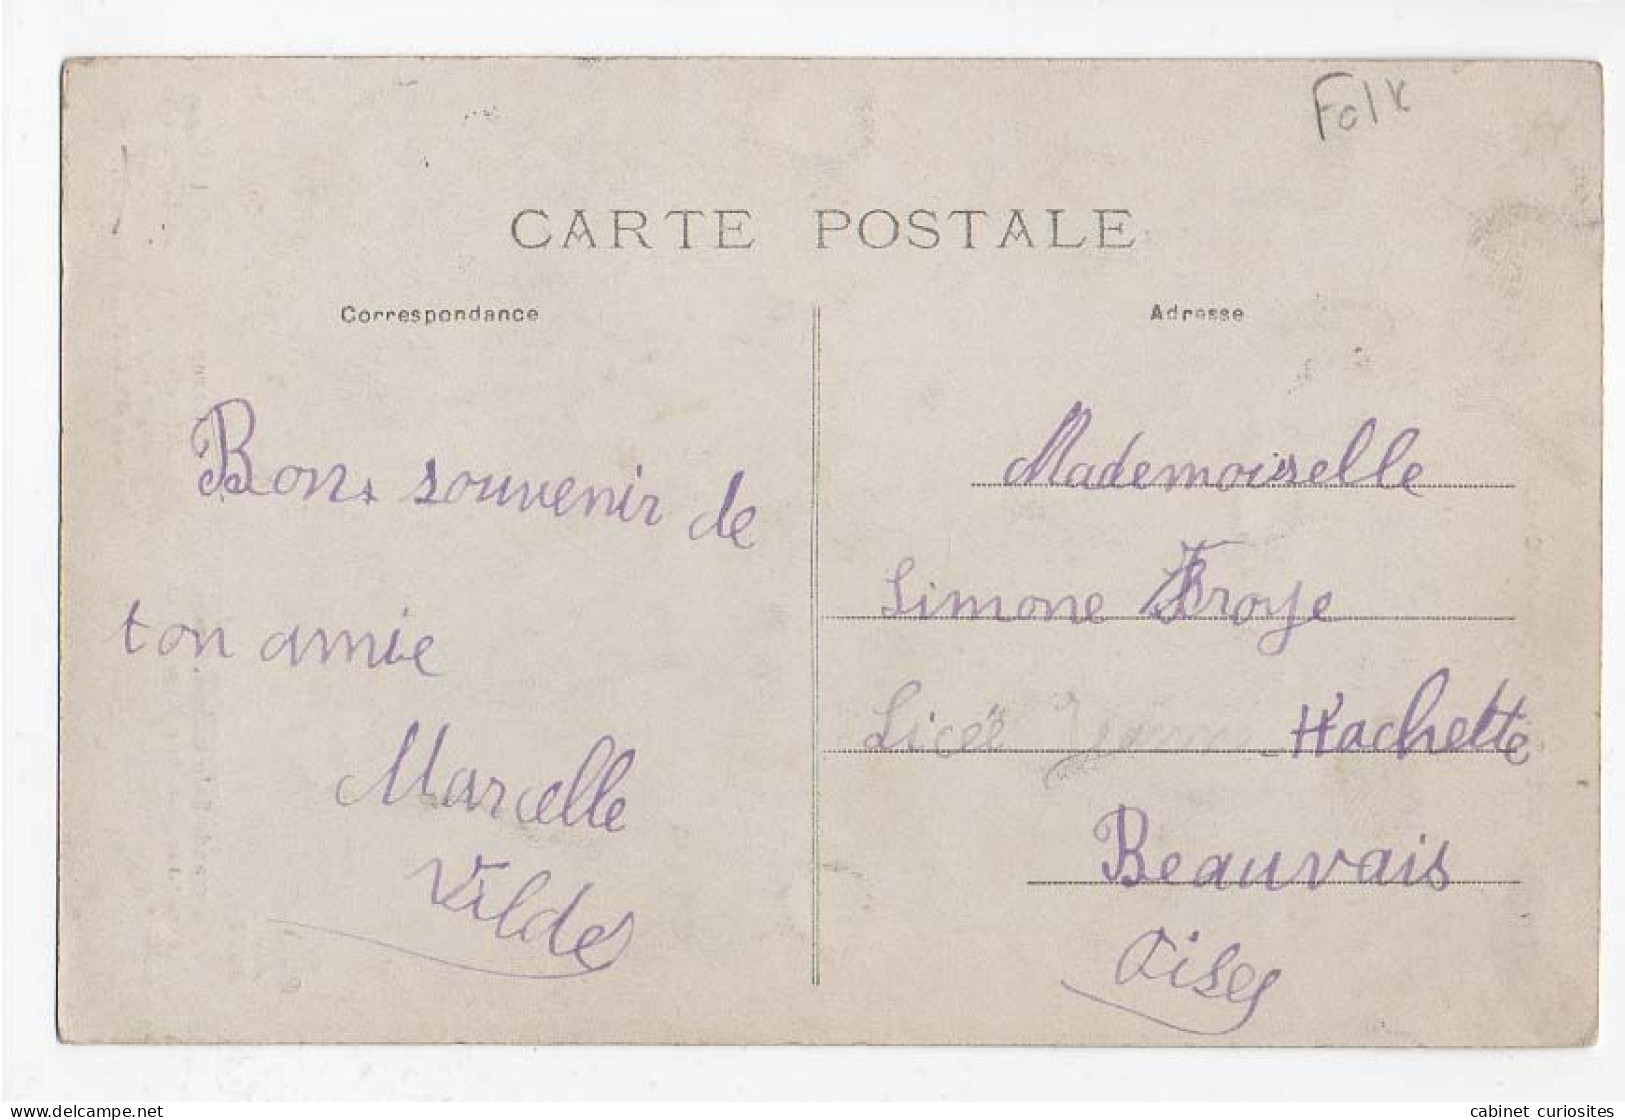 Folk
CARTE POSTALE
Correspondance
Adresse
Bons souvenir de
ton amie
Marcelle
Vilde
Mademoiselle
Simone
Licée Hachette
Beauvais
Oise
cabinet curiosites